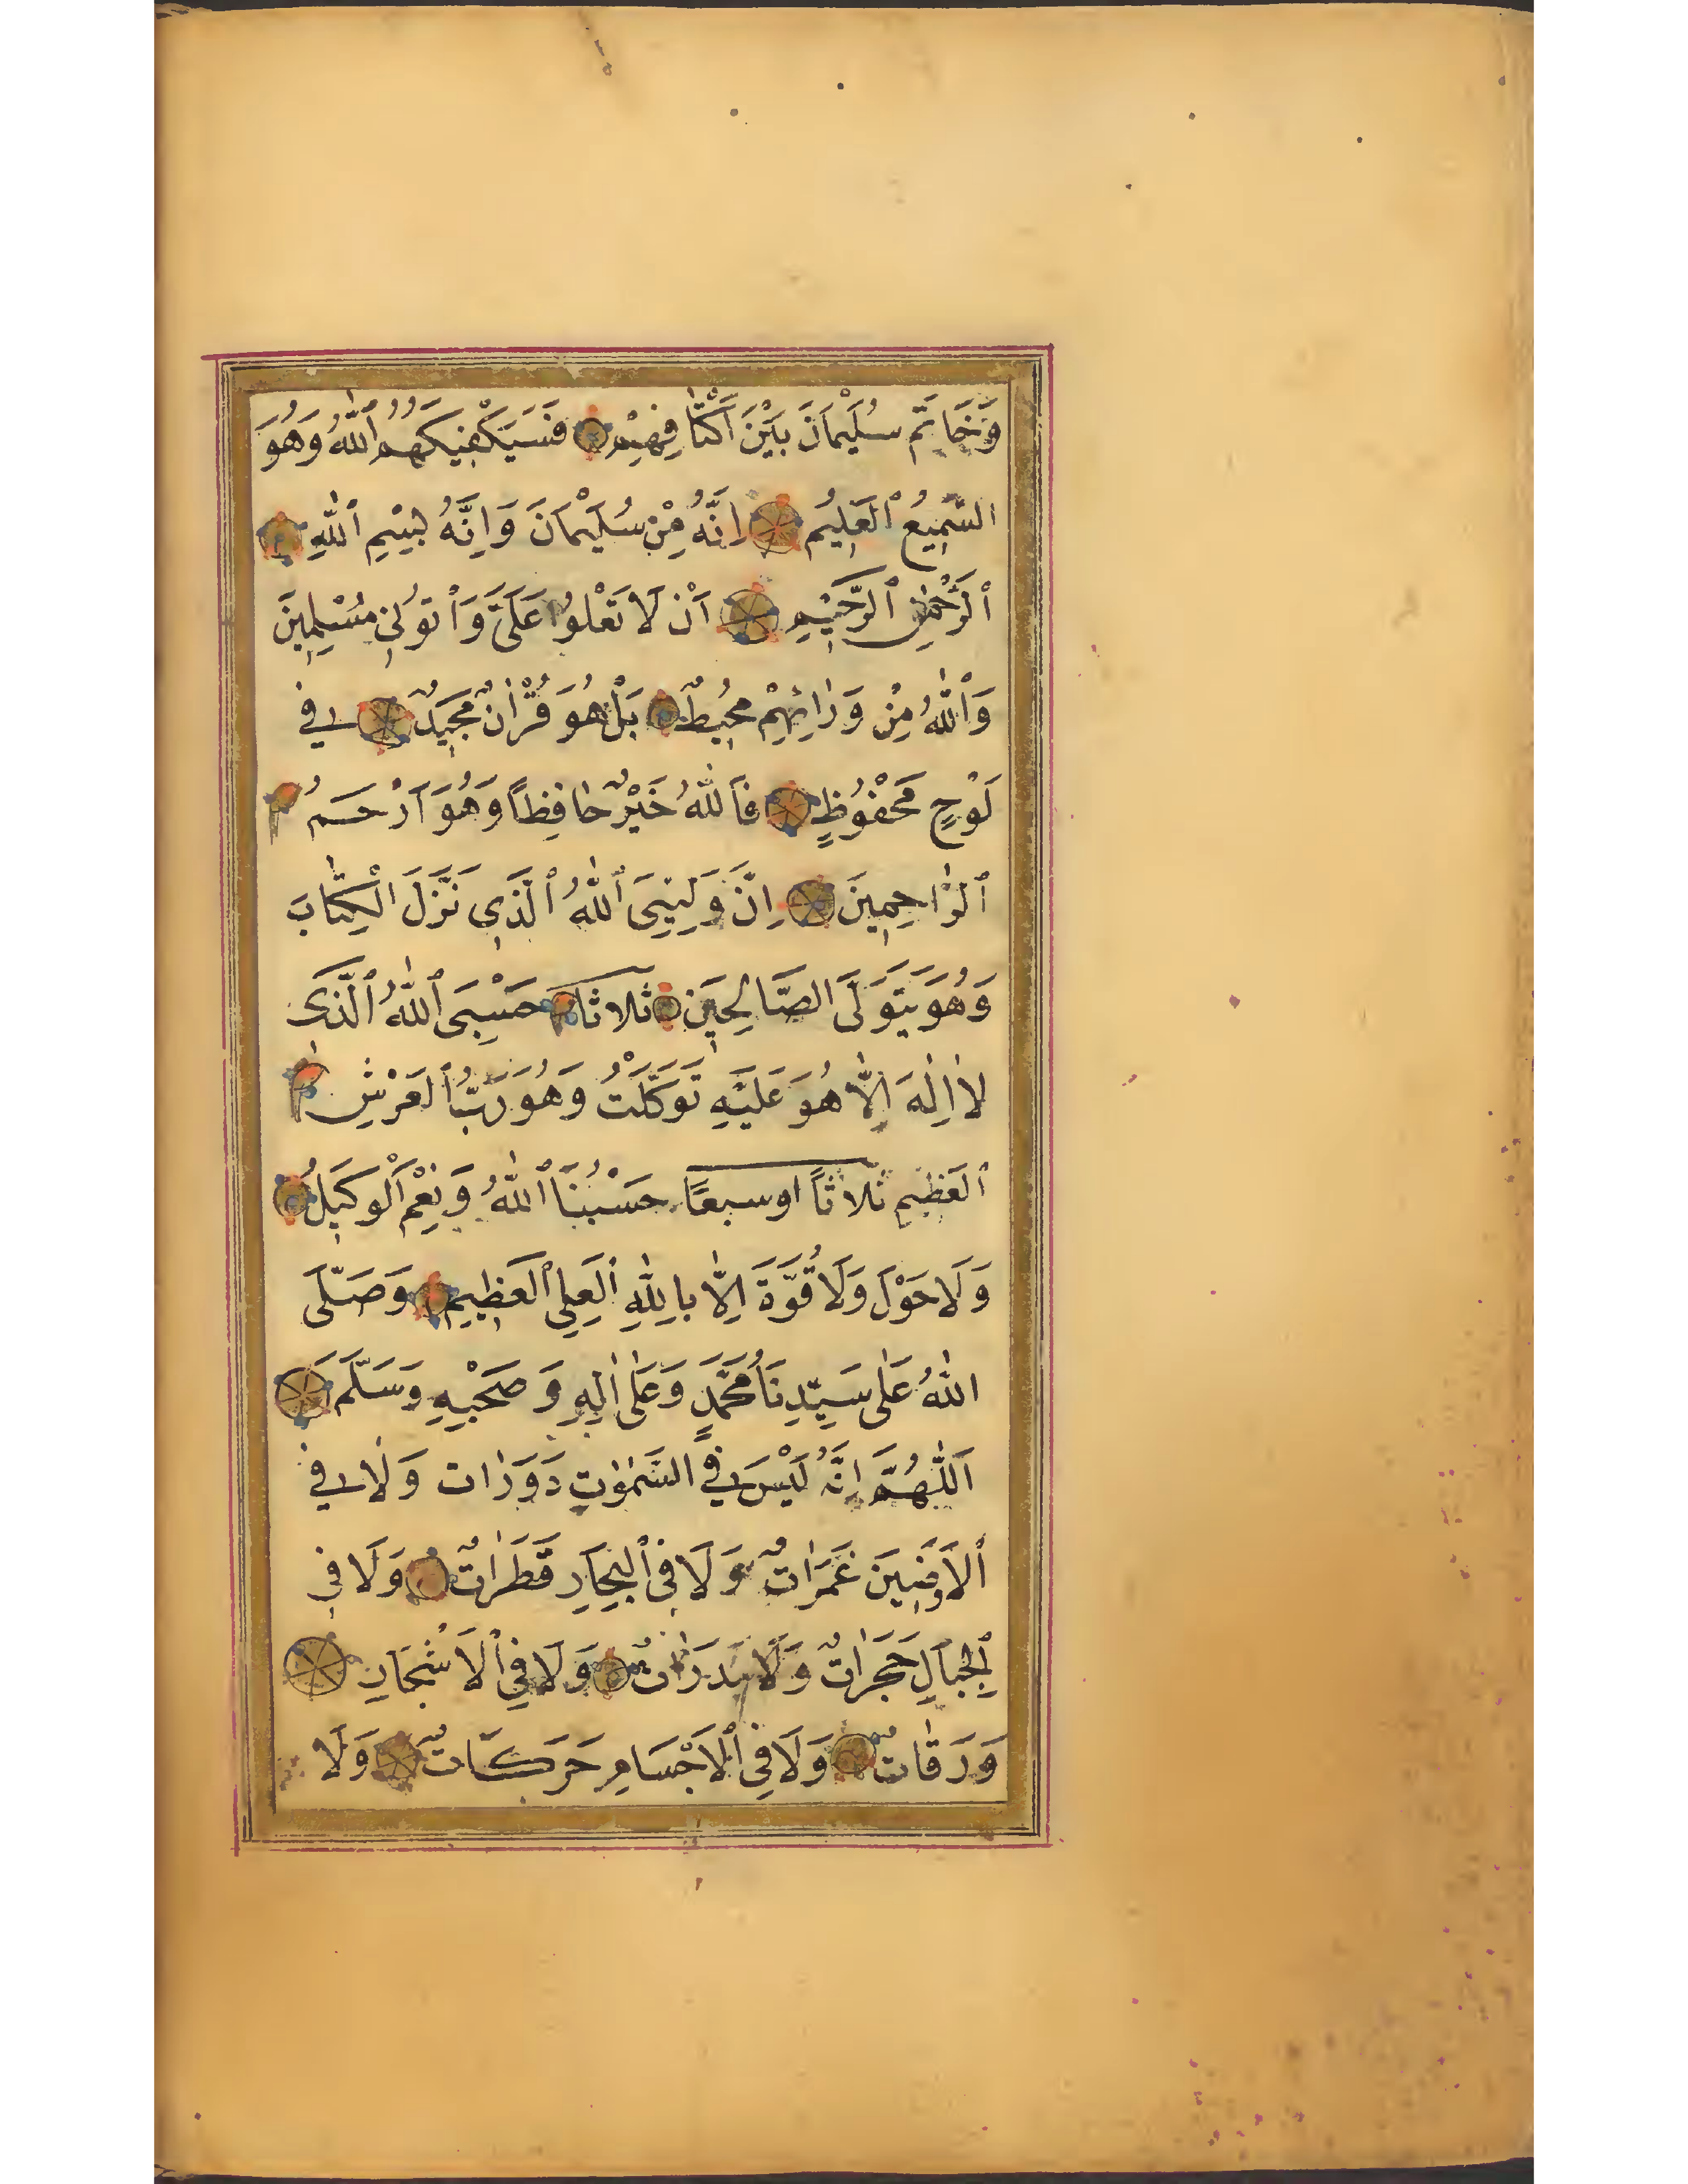 وَخَاتَمُ سُلَيْمَانَ بَيْنَ اَكْتَافِهِمْ فَسَيَكْفِيكَهُمُ اللّٰهُ وَهُوَ
السَّمِيعُ الْعَلِيمُ اِنَّهُ مِنْ سُلَيْمَانَ وَاِنَّهُ بِسْمِ اللّٰهِ
الرَّحْمٰنِ الرَّحِيمِ اَنْ لَا تَعْلُوا عَلَىَّ وَاْتُونِي مُسْلِمِينَ
وَاللّٰهُ مِنْ وَرَائِهِمْ مُحِيطٌ بَلْ هُوَ قُرْاٰنٌ مَجِيدٌ فِي
لَوْحٍ مَحْفُوظٍ فَاللّٰهُ خَيْرٌ حَافِظًا وَهُوَ اَرْحَمُ
الرَّاحِمِينَ اِنَّ وَلِيِّيَ اللّٰهُ الَّذِي نَزَّلَ الْكِتَابَ
وَهُوَ يَتَوَلَّى الصَّالِحِينَ ثلاثا حَسْبِيَ اللّٰهُ الَّذِي
لَا اِلٰهَ اِلَّا هُوَ عَلَيْهِ تَوَكَّلْتُ وَهُوَ رَبُّ الْعَرْشِ
الْعَظِيمِ ثلاثاً او سبعًا حَسْبُنَا اللّٰهُ وَنِعْمَ الْوَكِيلُ
وَلَا حَوْلَ وَلَا قُوَّةَ اِلَّا بِاللّٰهِ الْعَلِيِ الْعَظِيمِ وَصَلَّى
اللّٰهُ عَلٰى سَيِّدِنَا مُحَمَّدٍ وَعَلٰى اٰلِهِ وَصَحْبِهِ وَسَلَّمَ
اَللّٰهُمَّ اِنَّهُ لَيْسَ فِي السَّمٰوٰتِ دَوَرَات وَلَا فِي
الْاَرَضِينَ غَمَرَاتٌ وَلَا فِي الْبِحَارِ قَطَرَاتٌ وَلَا فِي
الْجِبَالِ حَجَرَاتٌ وَلَا مَدَرَاتٌ وَلَا فِي الْاَشْجَارِ
وَرَقَاتٌ وَلَا فِي الْاَجْسَامِ حَرَكَاتٌ وَلَا